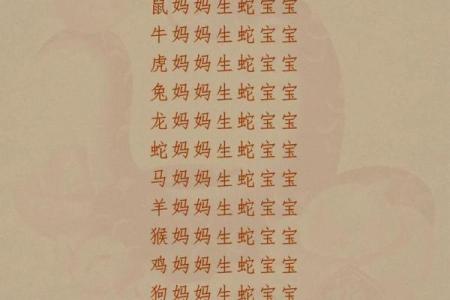 鼠妈妈生蛇宝宝
牛妈妈生蛇宝宝
虎妈妈生蛇宝宝
兔妈妈生蛇宝宝
龙妈妈生蛇宝宝
蛇妈妈生蛇宝宝
马妈妈生蛇宝宝
羊妈妈生蛇宝宝
猴妈妈生蛇宝宝
鸡妈妈生蛇宝宝
狗妈妈生蛇宝宝